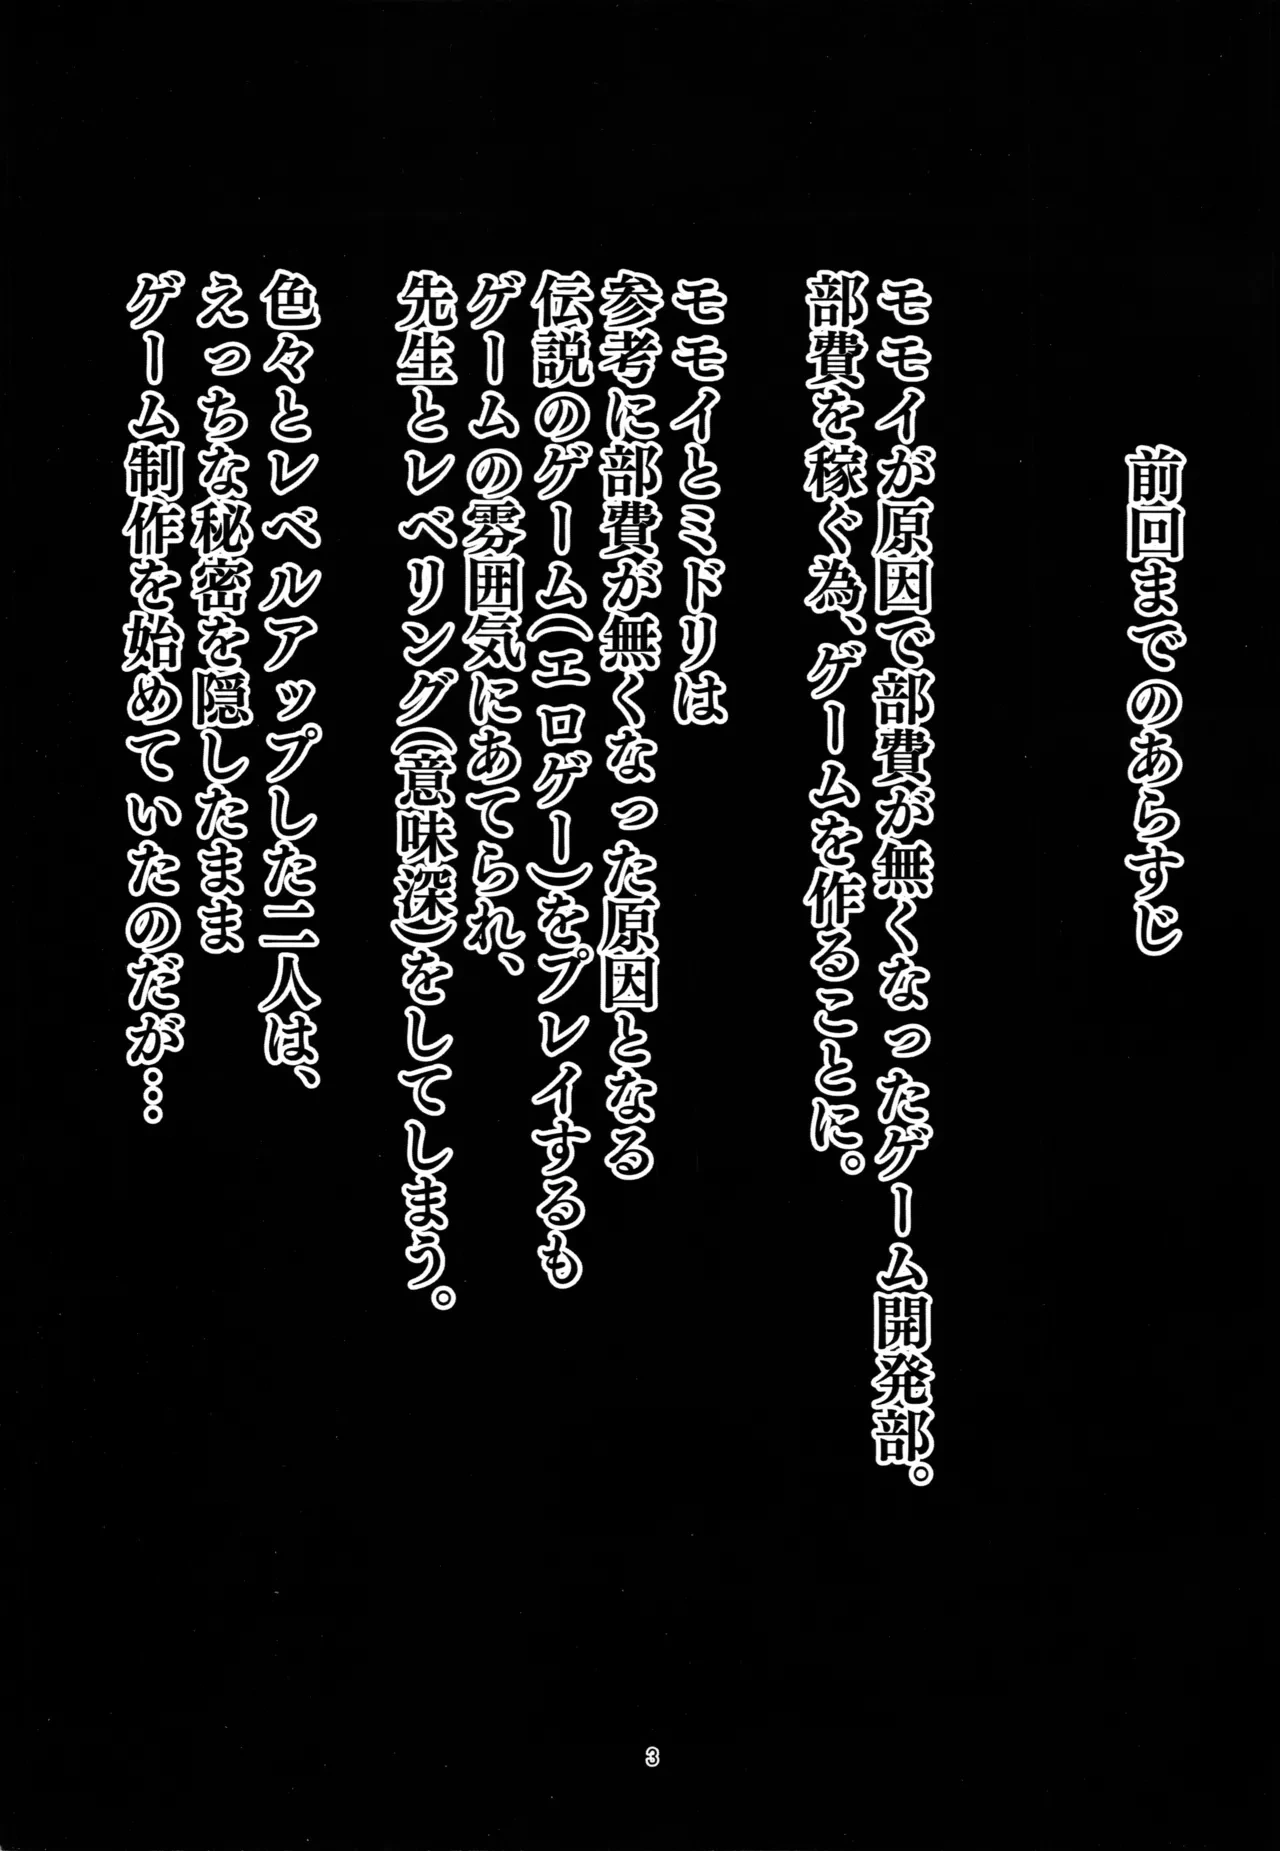 前回までのあらすじ
モモイが原因で部費が無くなったゲーム開発部。
部費を稼ぐ為、ゲームを作ることに。
モモイとミドリは
参考に部費が無くなった原因となる
伝説のゲーム（エロゲー）をプレイするも
ゲームの雰囲気にあてられ、
先生とレベリング（意味深）をしてしまう。
色々とレベルアップした二人は、
えっちな秘密を隠したまま
ゲーム制作を始めていたのだが…
3